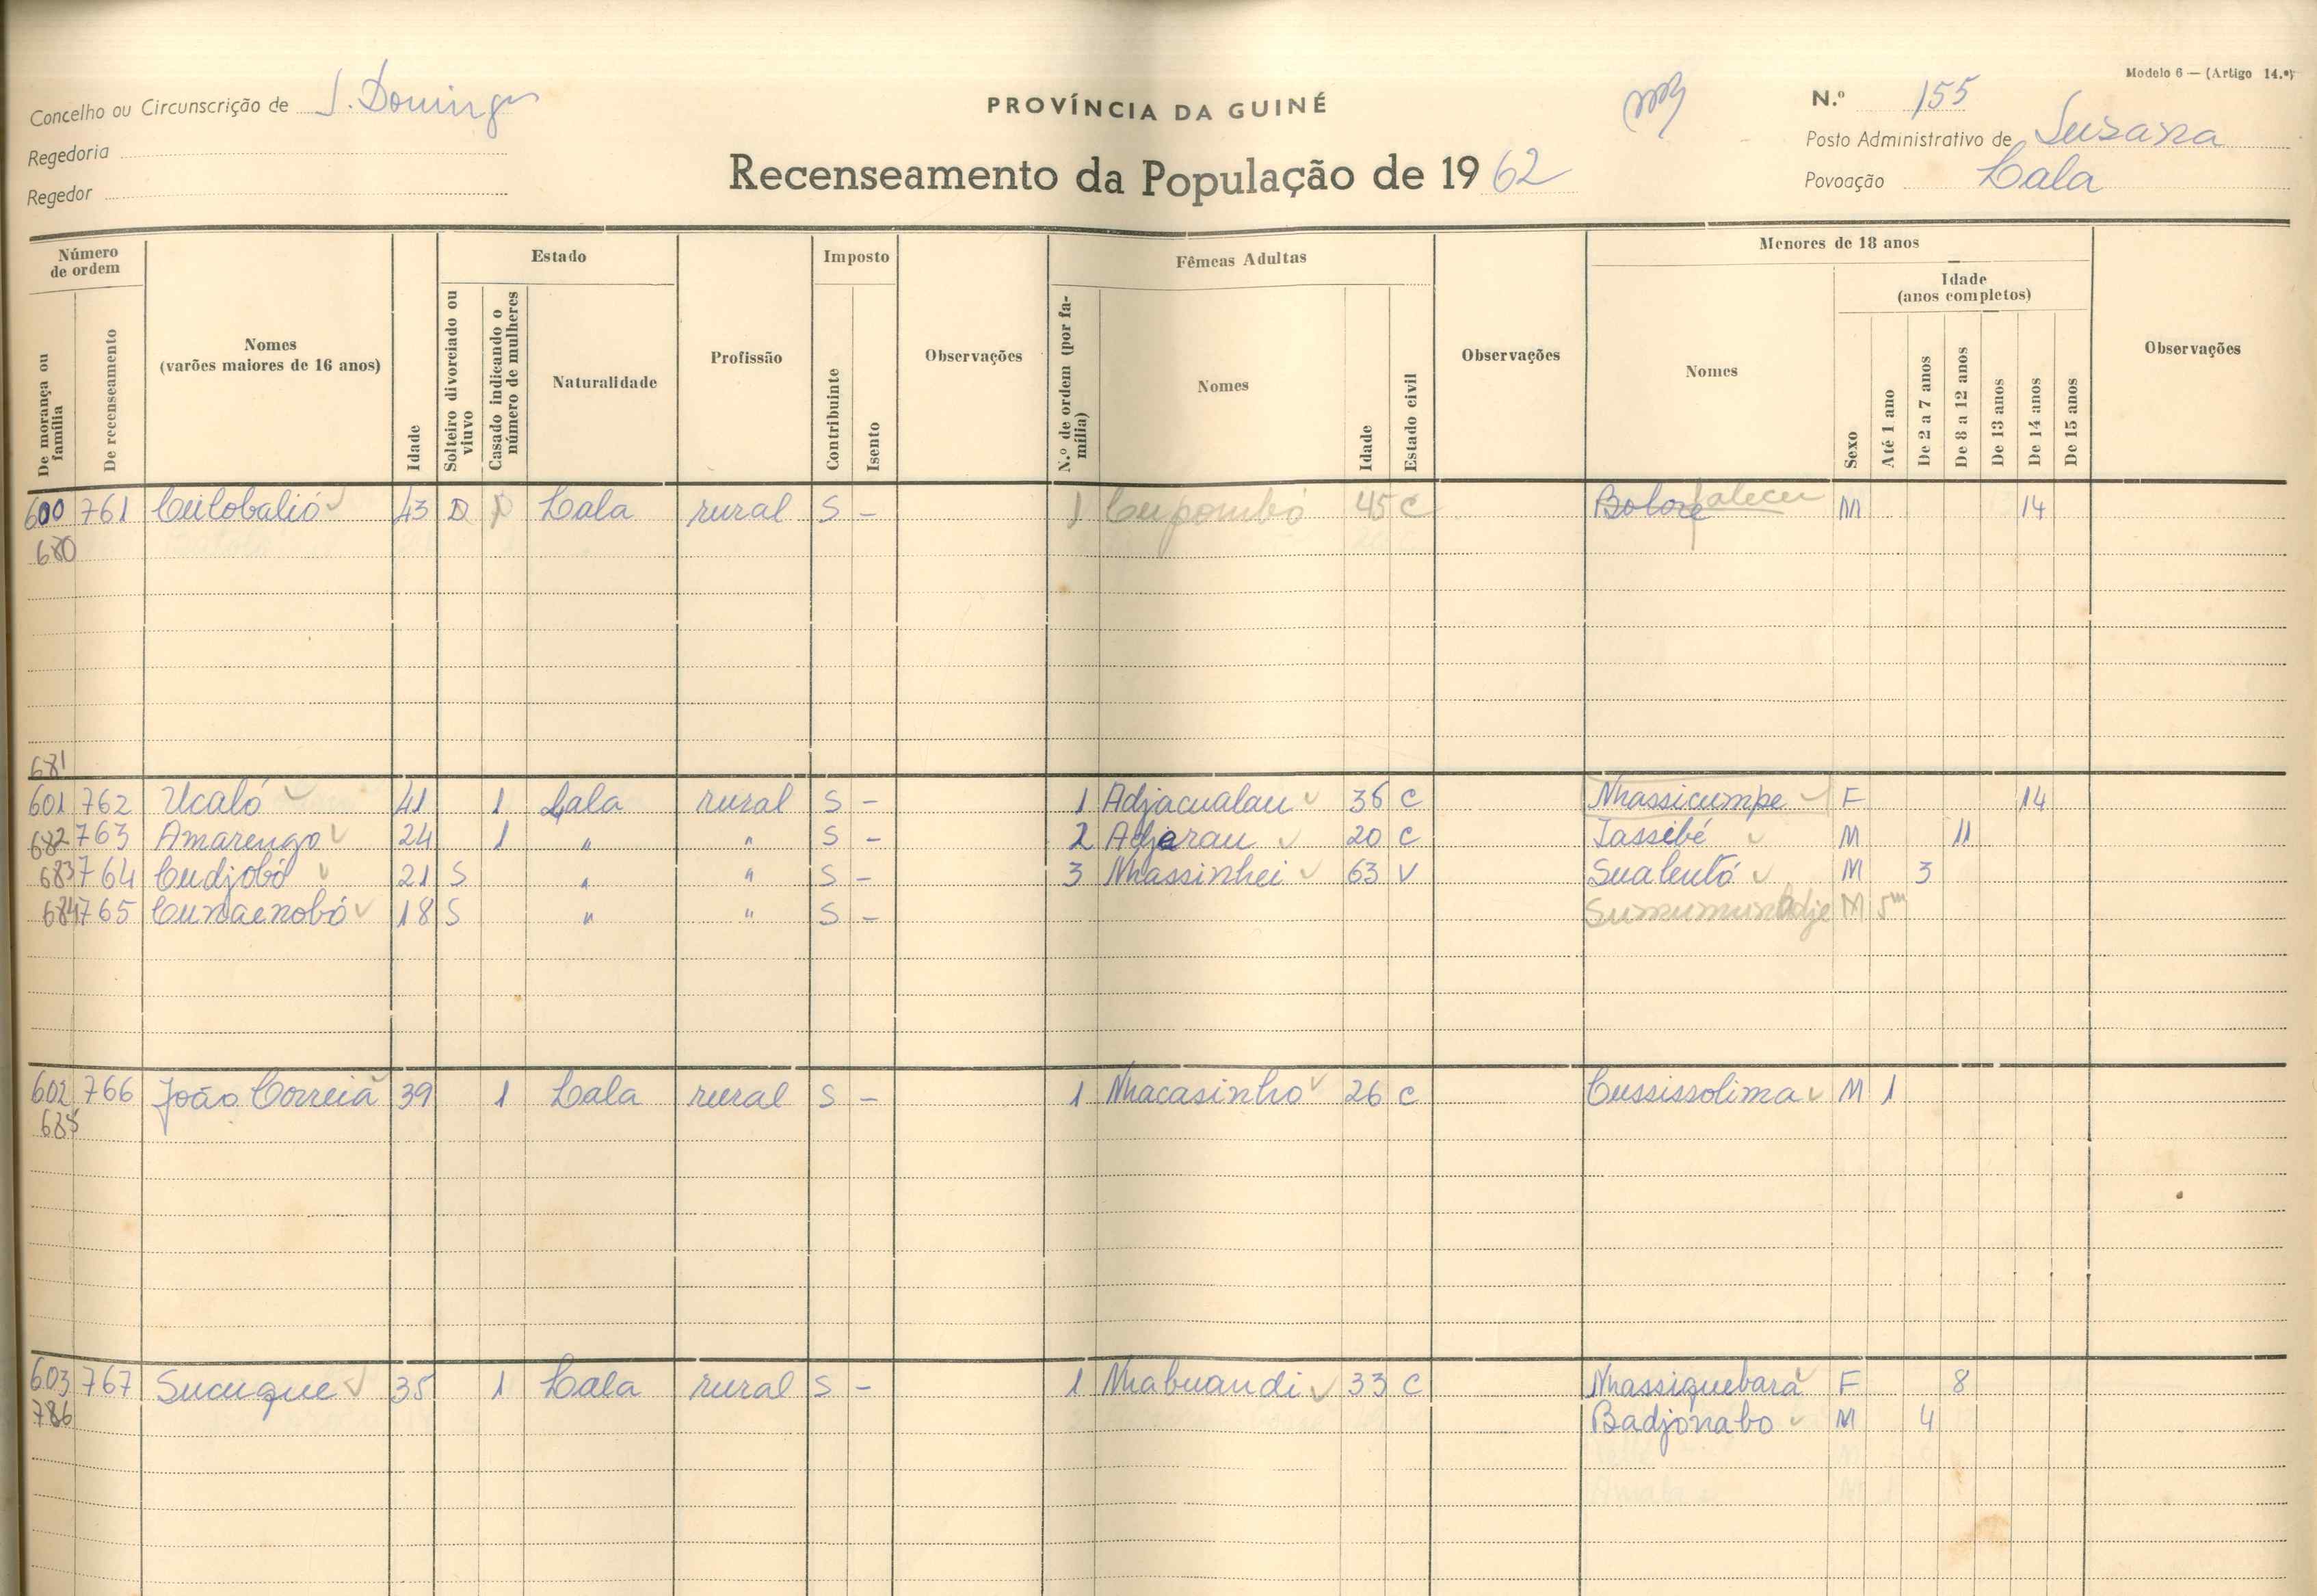 Modelo 6 — (Artigo 14.º)
Concelho ou Circunscrição de S. Domingos
PROVÍNCIA DA GUINÉ
N.º 155
Regedoria
Posto Administrativo de Susana
Regedor
Recenseamento da População de 1962
Povoação Lala
Número de ordem
Estado
Imposto
Fêmeas Adultas
Menores de 18 anos
Idade (anos completos)
De morança ou família
De recenseamento
Nomes (varões maiores de 16 anos)
Idade
Solteiro divorciado ou viuvo
Casado indicando o número de mulheres
Naturalidade
Profissão
Contribuinte
Isento
Observações
N.º de ordem (por família)
Nomes
Idade
Estado civil
Observações
Nomes
Sexo
Até 1 ano
De 2 a 7 anos
De 8 a 12 anos
De 13 anos
De 14 anos
De 15 anos
Observações
600 761 Cutobalió 43 D Lala rural S – 1 Cupombó 45 C Bolore faleceu M 14
680
681
601 762 Ucaló 41 1 Lala rural S – 1 Adjacualau 36 C Nhassicumpe F 14
682 763 Amarengo 24 1 " " S – 2 Adjarau 20 C Jassibé M 11
683 764 Cudjobó 21 S " " S – 3 Nhassinhei 63 V Sualentó M 3
684 765 Cunaenobó 18 S " " S – M 5m
602 766 João Correia 39 1 Lala rural S – 1 Nhacasinho 26 C Cussissolima M 1
685
603 767 Sucuque 35 1 Lala rural S – 1 Nhabuandi 33 C Nhassiquebará F 8
786 Badjonabo M 4